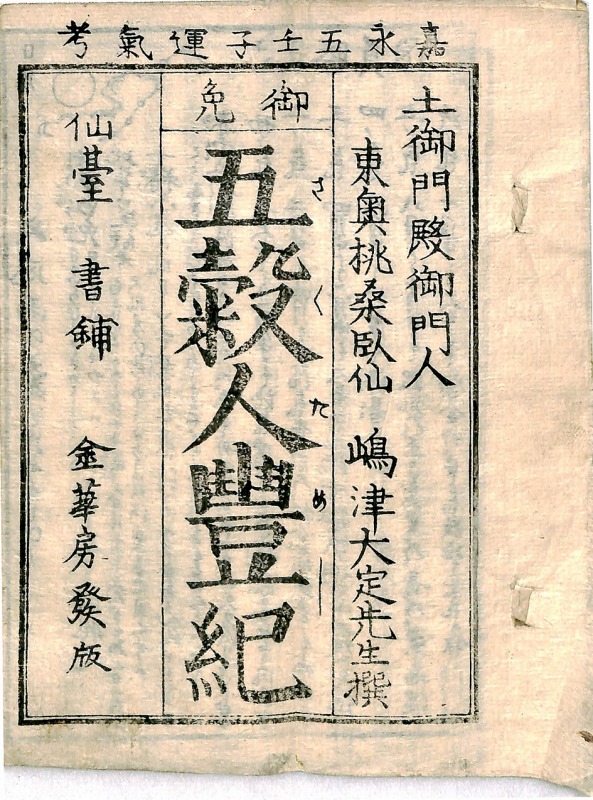 嘉永五壬子運氣考
土御門殿御門人
東奥挑桑臥仙 嶋津大定先生撰
御免
五穀人豊紀
さくためし
仙臺 書鋪 金華房發版